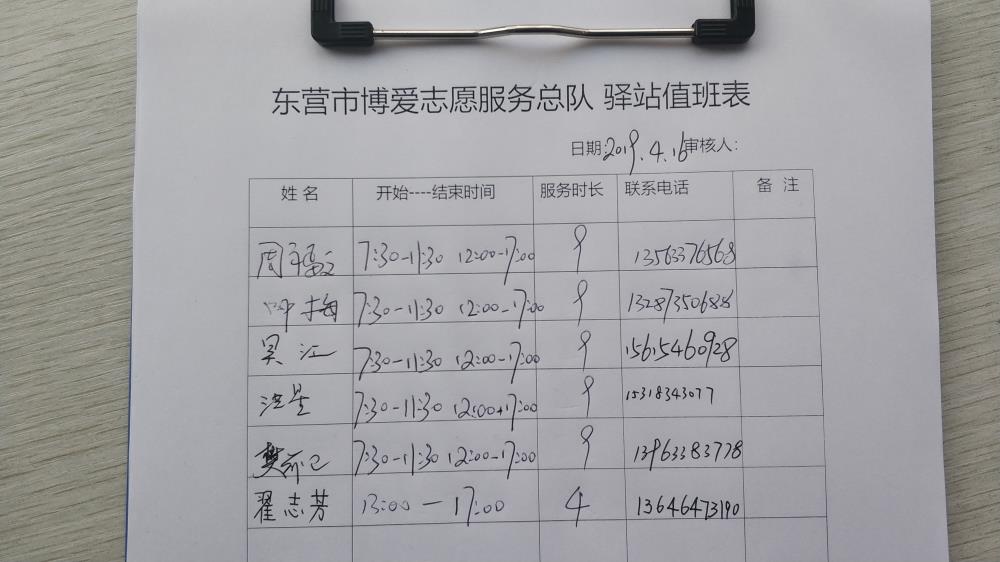 东营市博爱志愿服务总队 驿站值班表
日期:2019.4.16 审核人:
姓名 开始----结束时间 服务时长 联系电话 备 注
周 7:30-11:30 12:00-17:00 9 13563376568
梅 7:30-11:30 12:00-17:00 9 13287350688
吴江 7:30-11:30 12:00-17:00 9 15615460928
7:30-11:30 12:00-17:00 9 15318343077
7:30-11:30 12:00-17:00 9 13963383778
翟志芳 13:00—17:00 4 13646473190